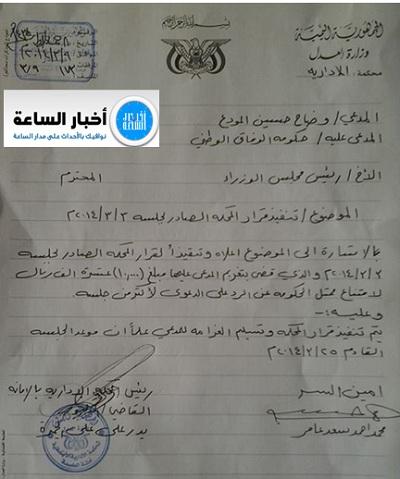 بسم الله الرحمن الرحيم
الجمهورية اليمنية
وزارة العدل
محكمة الادارية
أخبار الساعة
نوافيك بالأحداث على مدار الساعة
المدعي / وضاح حسين المودع
المدعى عليه / حكومة الوفاق الوطني
الأخ / رئيس مجلس الوزراء المحترم
الموضوع / تنفيذ قرار المحكمة الصادر لجلسة ٢٠١٤/٣/٣
بالاشارة الى الموضوع اعلاه وتنفيذاً لقرار المحكمة الصادر لجلسة
٢٠١٤/٣/٣م والذي قضى بتغريم المدعى عليها مبلغ (١٠,٠٠٠) عشرة الف ريال
لامتناع ممثل الحكومة عن الرد على الدعوى لأكثر من جلسة
وعليه:-
يتم تنفيذ قرار المحكمة وتسليم الغرامة للمدعي علماً ان موعد الجلسة
القادم ٢٠١٤/٣/٢٥م
امين السر
محمد احمد سعد عامر
رئيس المحكمة الادارية بالامانة
القاضي /
بدر علي